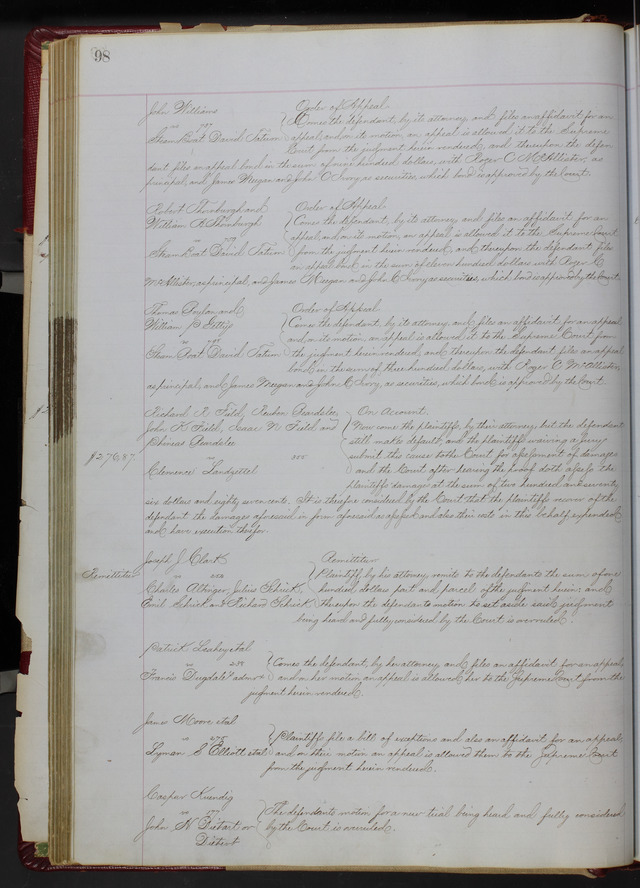 98
John Williams Order of Appeal
vs Comes the defendant, by its attorney, and files an affidavit for an
Steam Boat David Tatum appeal, and on its motion, an appeal is allowed it to the Supreme
Court from the judgment herein rendered, and thereupon the defen
dant files an appeal bond in the sum of nine hundred dollars, with Roger C McAllister, as
principal, and James Meegan and John C Ivory, as securities, which bond is approved by the Court.
Robert Thornburgh and Order of Appeal
William R Thornburgh Comes the defendant, by its attorney, and files an affidavit for an
vs appeal, and on its motion, an appeal is allowed it to the Supreme Court
Steam Boat David Tatum from the judgment herein rendered, and thereupon the defendant files
an appeal bond in the sum of eleven hundred dollars with Roger C
McAllister, as principal, and James Meegan and John C Ivory as securities, which bond is approved by the Court.
Thomas and Order of Appeal
William P Comes the defendant, by its attorney, and files an affidavit for an appeal
vs and on its motion, an appeal is allowed it to the Supreme Court from
Steam Boat David Tatum the judgment herein rendered, and thereupon the defendant files an appeal
bond in the sum of three hundred dollars, with Roger C McAllister,
as principal, and James Meegan and John C Ivory, as securities, which bond is approved by the Court.
Richard R Field, Reuben Beardslee, On Account.
John K Field, Isaac N Field and Now come the plaintiffs, by their attorney, but the defendant
Phineas Beardslee still makes default, and the plaintiffs waiving a jury
$276.87 vs submit this cause to the Court for assessment of damages
Clemence and the Court, after hearing the proof doth assess the
plaintiffs damage at the sum of two hundred and seventy
six dollars and eighty seven cents. It is therefore considered by the Court that the plaintiffs recover of the
defendant the damages aforesaid in form aforesaid as assessed and also their costs in this behalf expended
and have execution therefor.
Joseph J Clark Remittitur
Remittitur vs Plaintiff, by his attorney, remits to the defendants the sum of one
Charles Julius Schick, hundred dollars part and parcel of the judgment herein, and
Emil Schick and Richard Schick thereupon the defendants motion to set aside said judgment
being heard and fully considered by the Court is overruled.
Patrick et al
vs 239 Comes the defendant, by her attorney, and files an affidavit for an appeal,
Francis Dugdale's admrx and on her motion an appeal is allowed her to the Supreme Court from the
judgment herein rendered.
James Moore et al
vs Plaintiffs file a bill of exceptions and also an affidavit for an appeal,
Lyman S Elliott et al and on their motion an appeal is allowed them to the Supreme Court
from the judgment herein rendered.
Caspar Kuendig
vs The defendants motion for a new trial being heard and fully considered
John H Diebart or by the Court is overruled.
Diebert